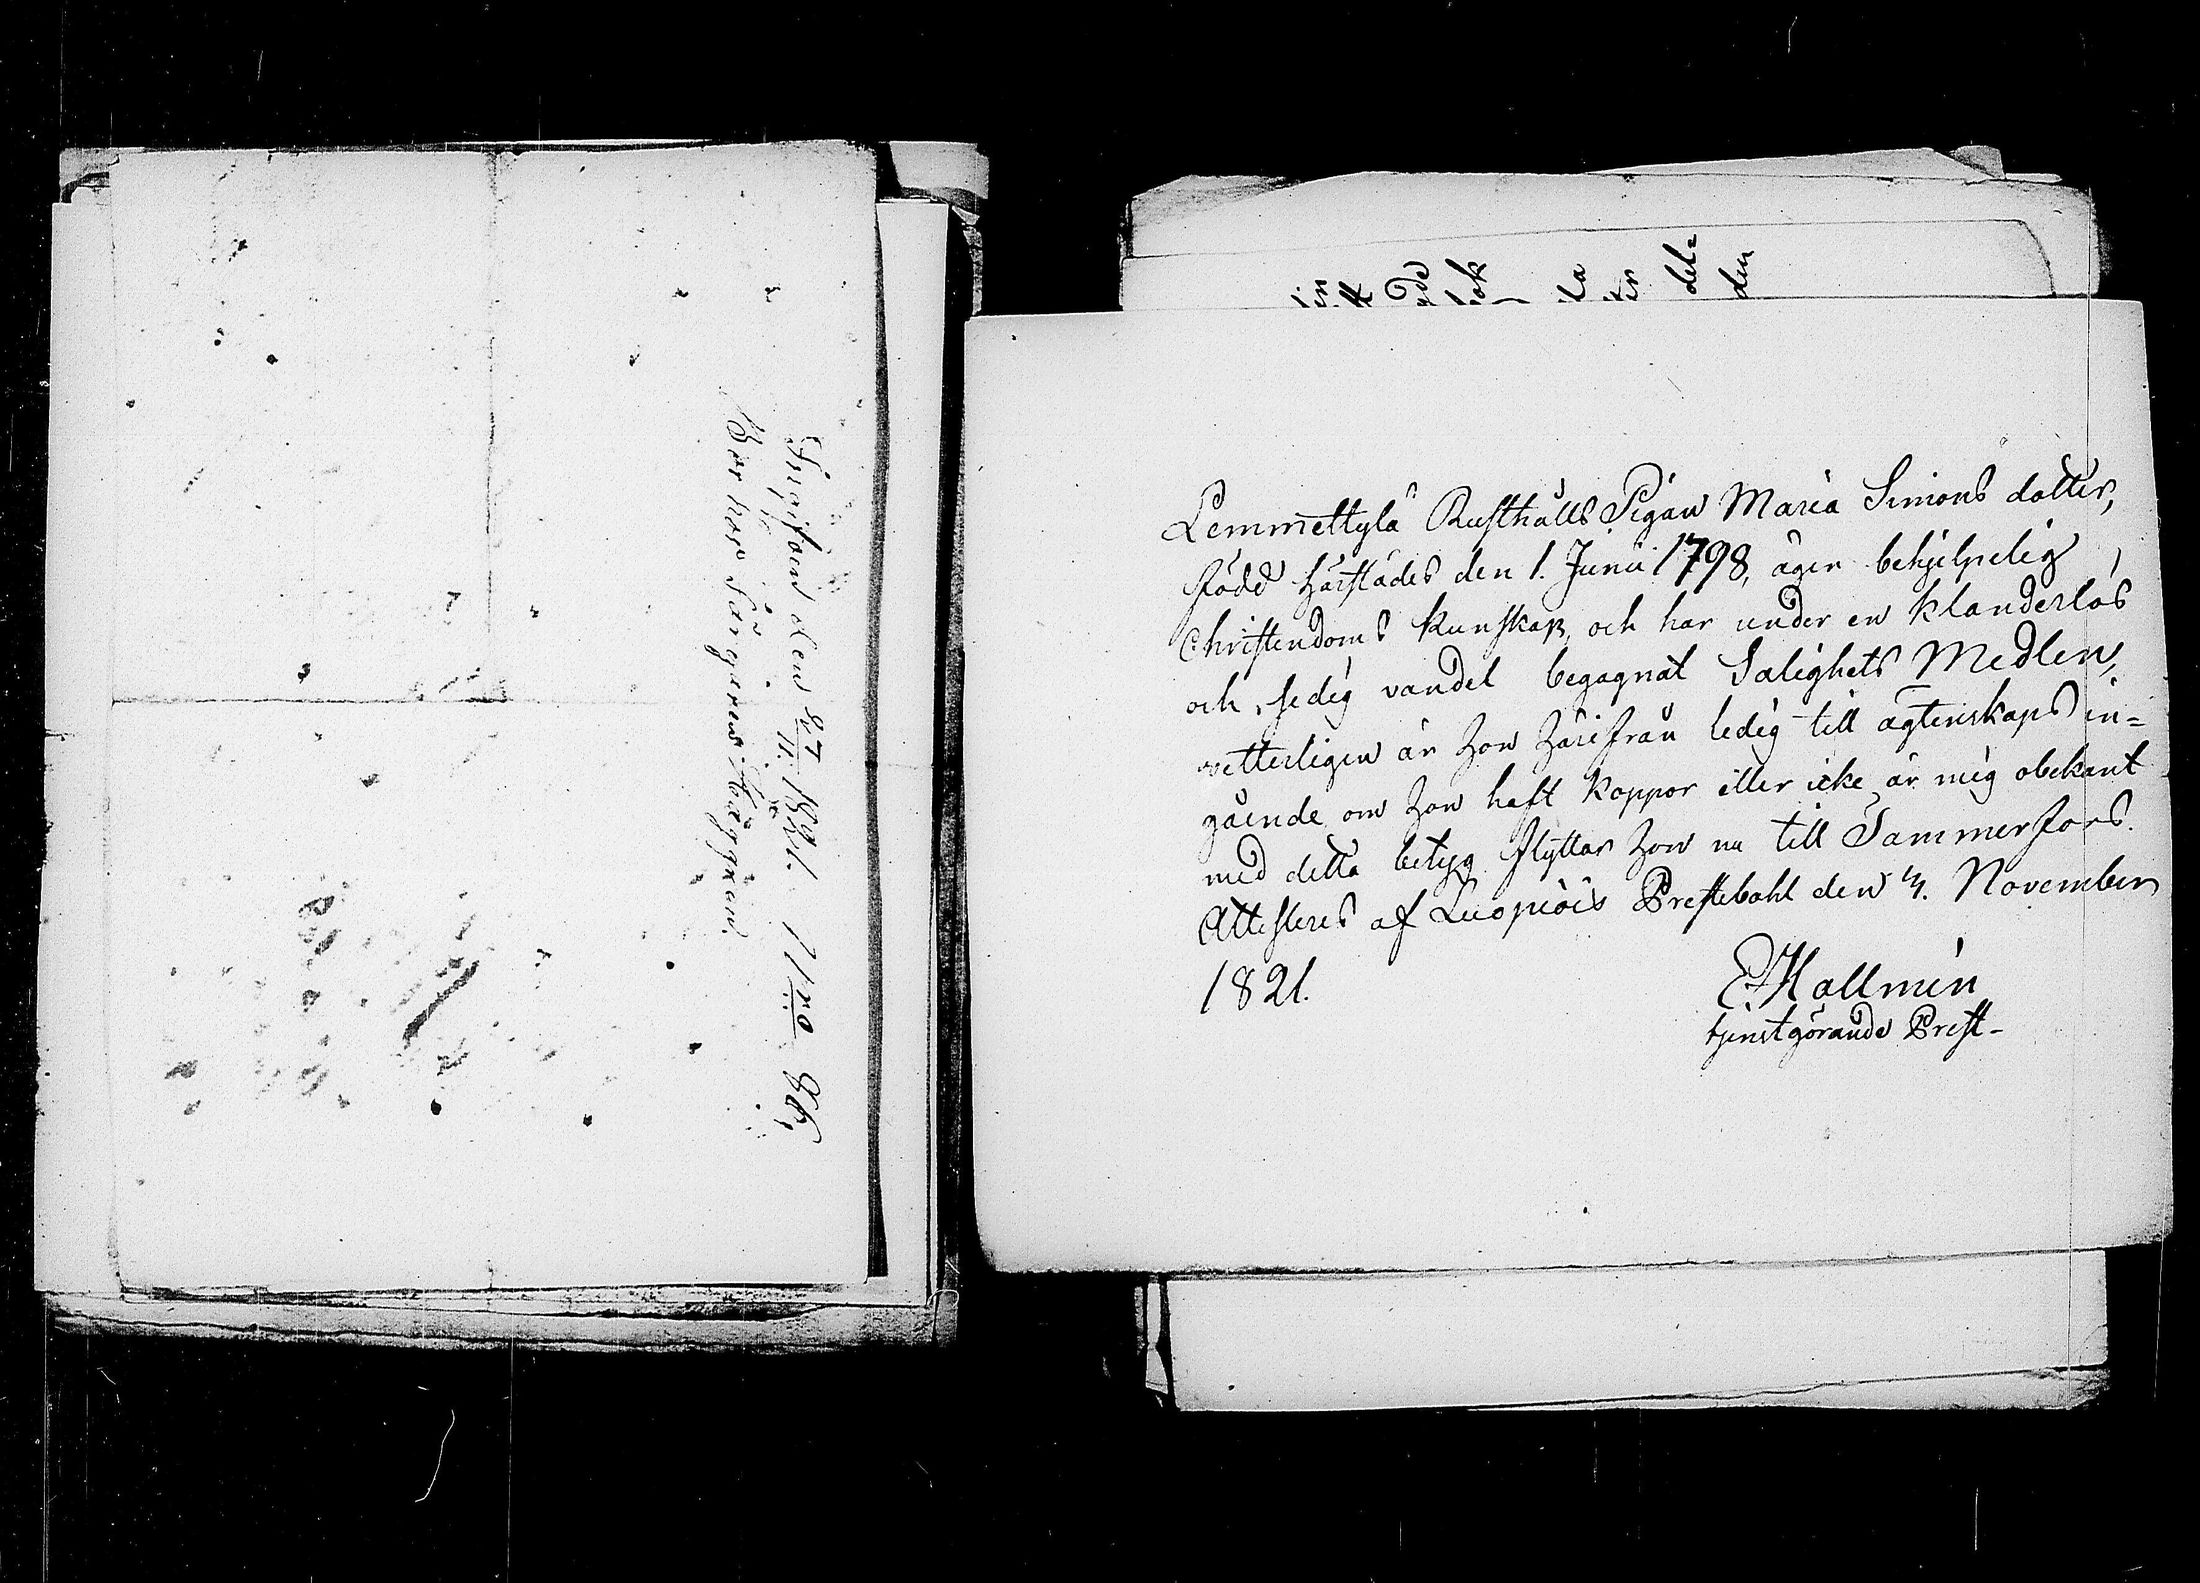 Ingifven den 27/11. 1821. Nro 86,
Bor hos Färgeren Häggren.
in
tt
de
ok
ta
ter
del=
den
Lemmettylä Rusthålls Pigan Maria Simons dotter,
född härstädes den 1. Junii 1798, äger behjelpelig
Christendoms kunskap, och har under en klanderlös
och sedig vandel begagnat Salighets Medlen,
vetterligen är hon härifrån ledig till ägtenskaps in=
gående om hon haft koppor eller icke är mig obekant
med detta betyg flyttar hon nu till Tammerfors.
Attesteres af Luopiois Prestebohl den 4. November
1821.
E. Hallmén
tjenstgörande Prest-